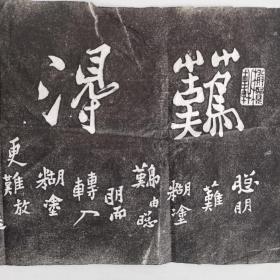 難得
聰明
難
糊塗
難由聰
明而
轉入
糊塗
更難放